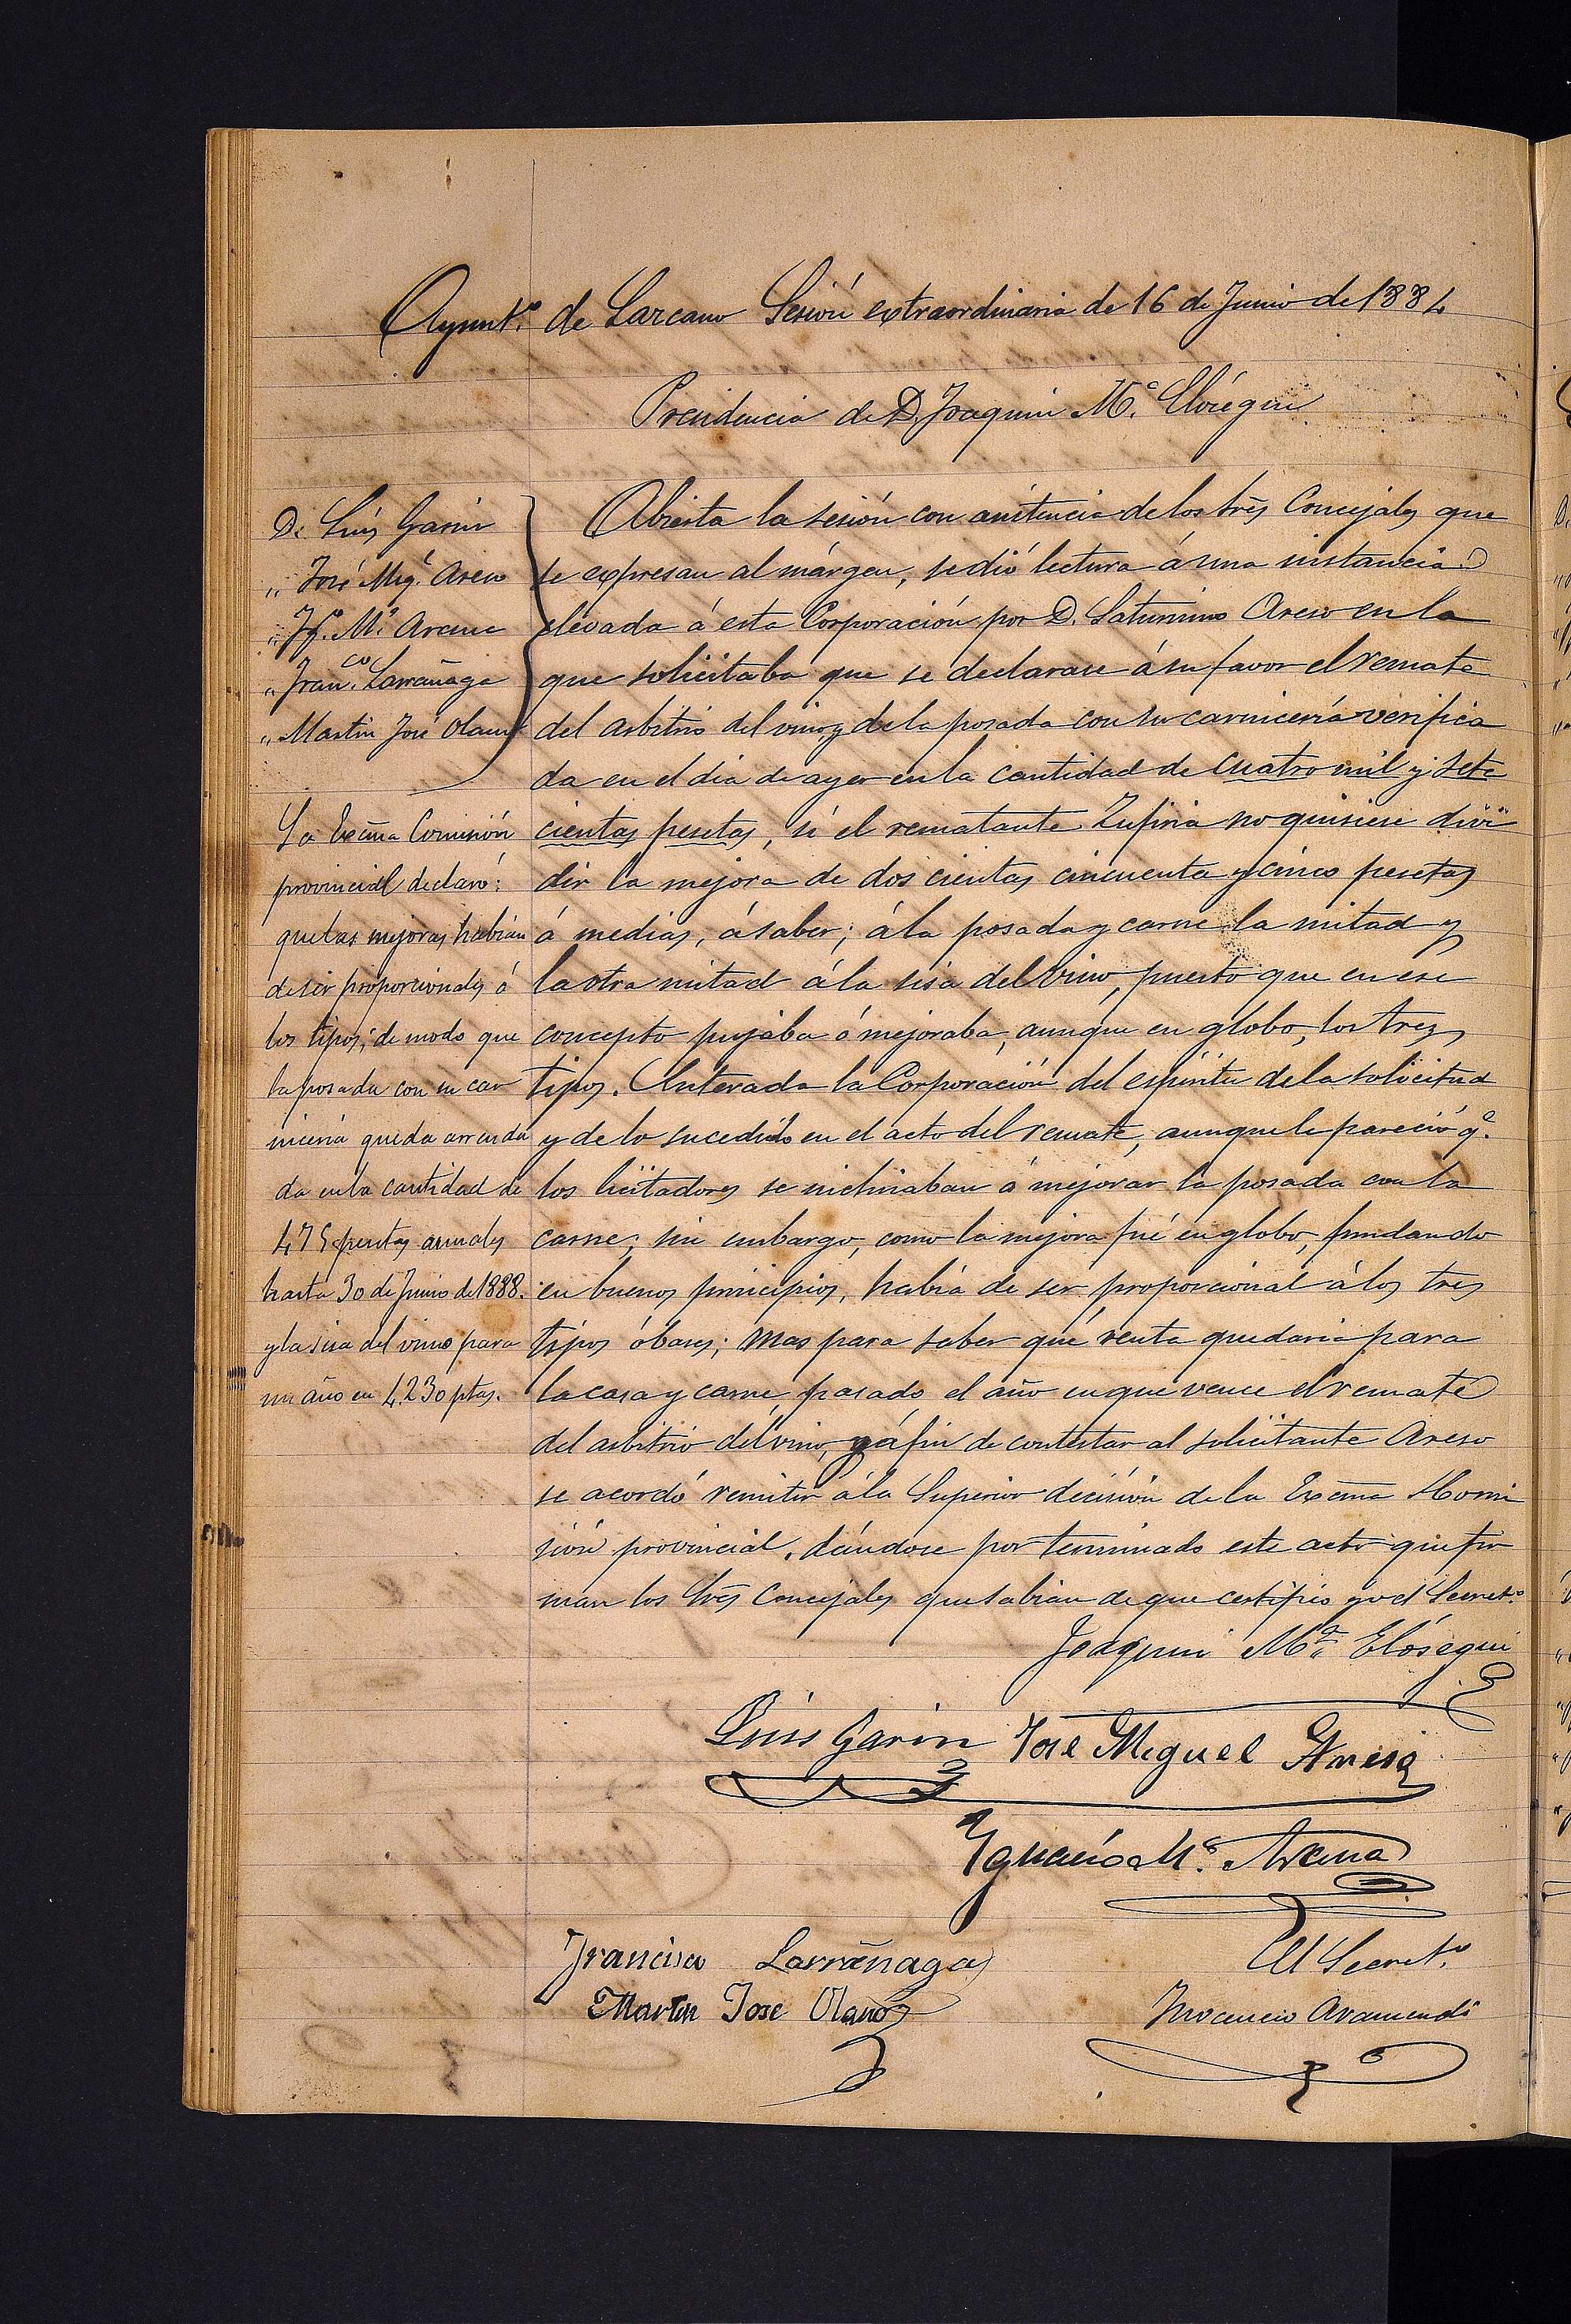 Ayunt.º de Lazcano Sesión extraordinaria de 16 de Junio de 1884
Presidencia de D. Joaquin M.ª Elósegui
D. Luis Garin
„ José Mig.l Areso
„ Ig.º M.ª Arcaue
„ Fran.co Larrañaga
„ Martin José Olano
La Excma Comisión
provincial declaró:
que las mejoras habian
de ser proporcionales á
los tipos; de modo que
la posada con su car
niceria queda arrenda
da en la cantidad de
475 pesetas anuales
hasta 30 de Junio de 1888.
y la sisa del vino para
un año en 4.230 ptas.
Abierta la sesión con asistencia de los trés Concejales que
se expresan al márgen, se dió lectura á una instancia
elevada á esta Corporación por D. Saturnino Areso en la
que solicitaba que se declarase á su favor el remate
del arbitrio del vino y de la posada con su carnicería verifica
da en el dia de ayer en la cantidad de cuatro mil y sete
cientas pesetas, si el rematante Zufiria no quisiese divi
dir la mejora de dos cientas cincuenta y cinco pesetas
á medias, á saber; á la posada y carne la mitad y
la otra mitad á la sisa del vino, puesto que en ese
concepto pujaba ó mejoraba, aunque en globo, los tres
tipos. Enterada la Corporación del espíritu de la solicitud
y de lo sucedido en el acto del remate, aunque le pareció q.e
los licitadores se inclinaban á mejorar la posada con la
carne; sin embargo, como la mejora fué en globo, fundando
en buenos principios, habia de ser proporcional á los tres
tipos ó bases; mas para saber qué renta quedaria para
la casa y carne, pasado el año en que vence el remate
del arbitrio del vino, y á fin de contestar al solicitante Areso
se acordó remitir á la Superior decisión de la Excma Comi
sión provincial, dándose por terminado este acto que fir
man los trés Concejales que sabian de que certifico yo el Secret.º
Joaquin M.ª Elósegui
Luis Garin José Miguel Areso
Ygnacio M.ª Arcaua
Francisco Larrañaga
El Secret.º
Martin Jose Olano
Inocencio Aramendi